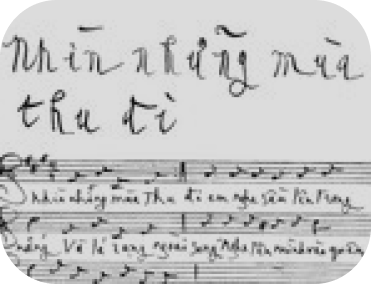 Nhìn những mùa
thu đi
Nhìn những mùa thu đi em nghe sầu lên trong
nắng Và lá rụng ngoài song Nghe tên mình vào quên